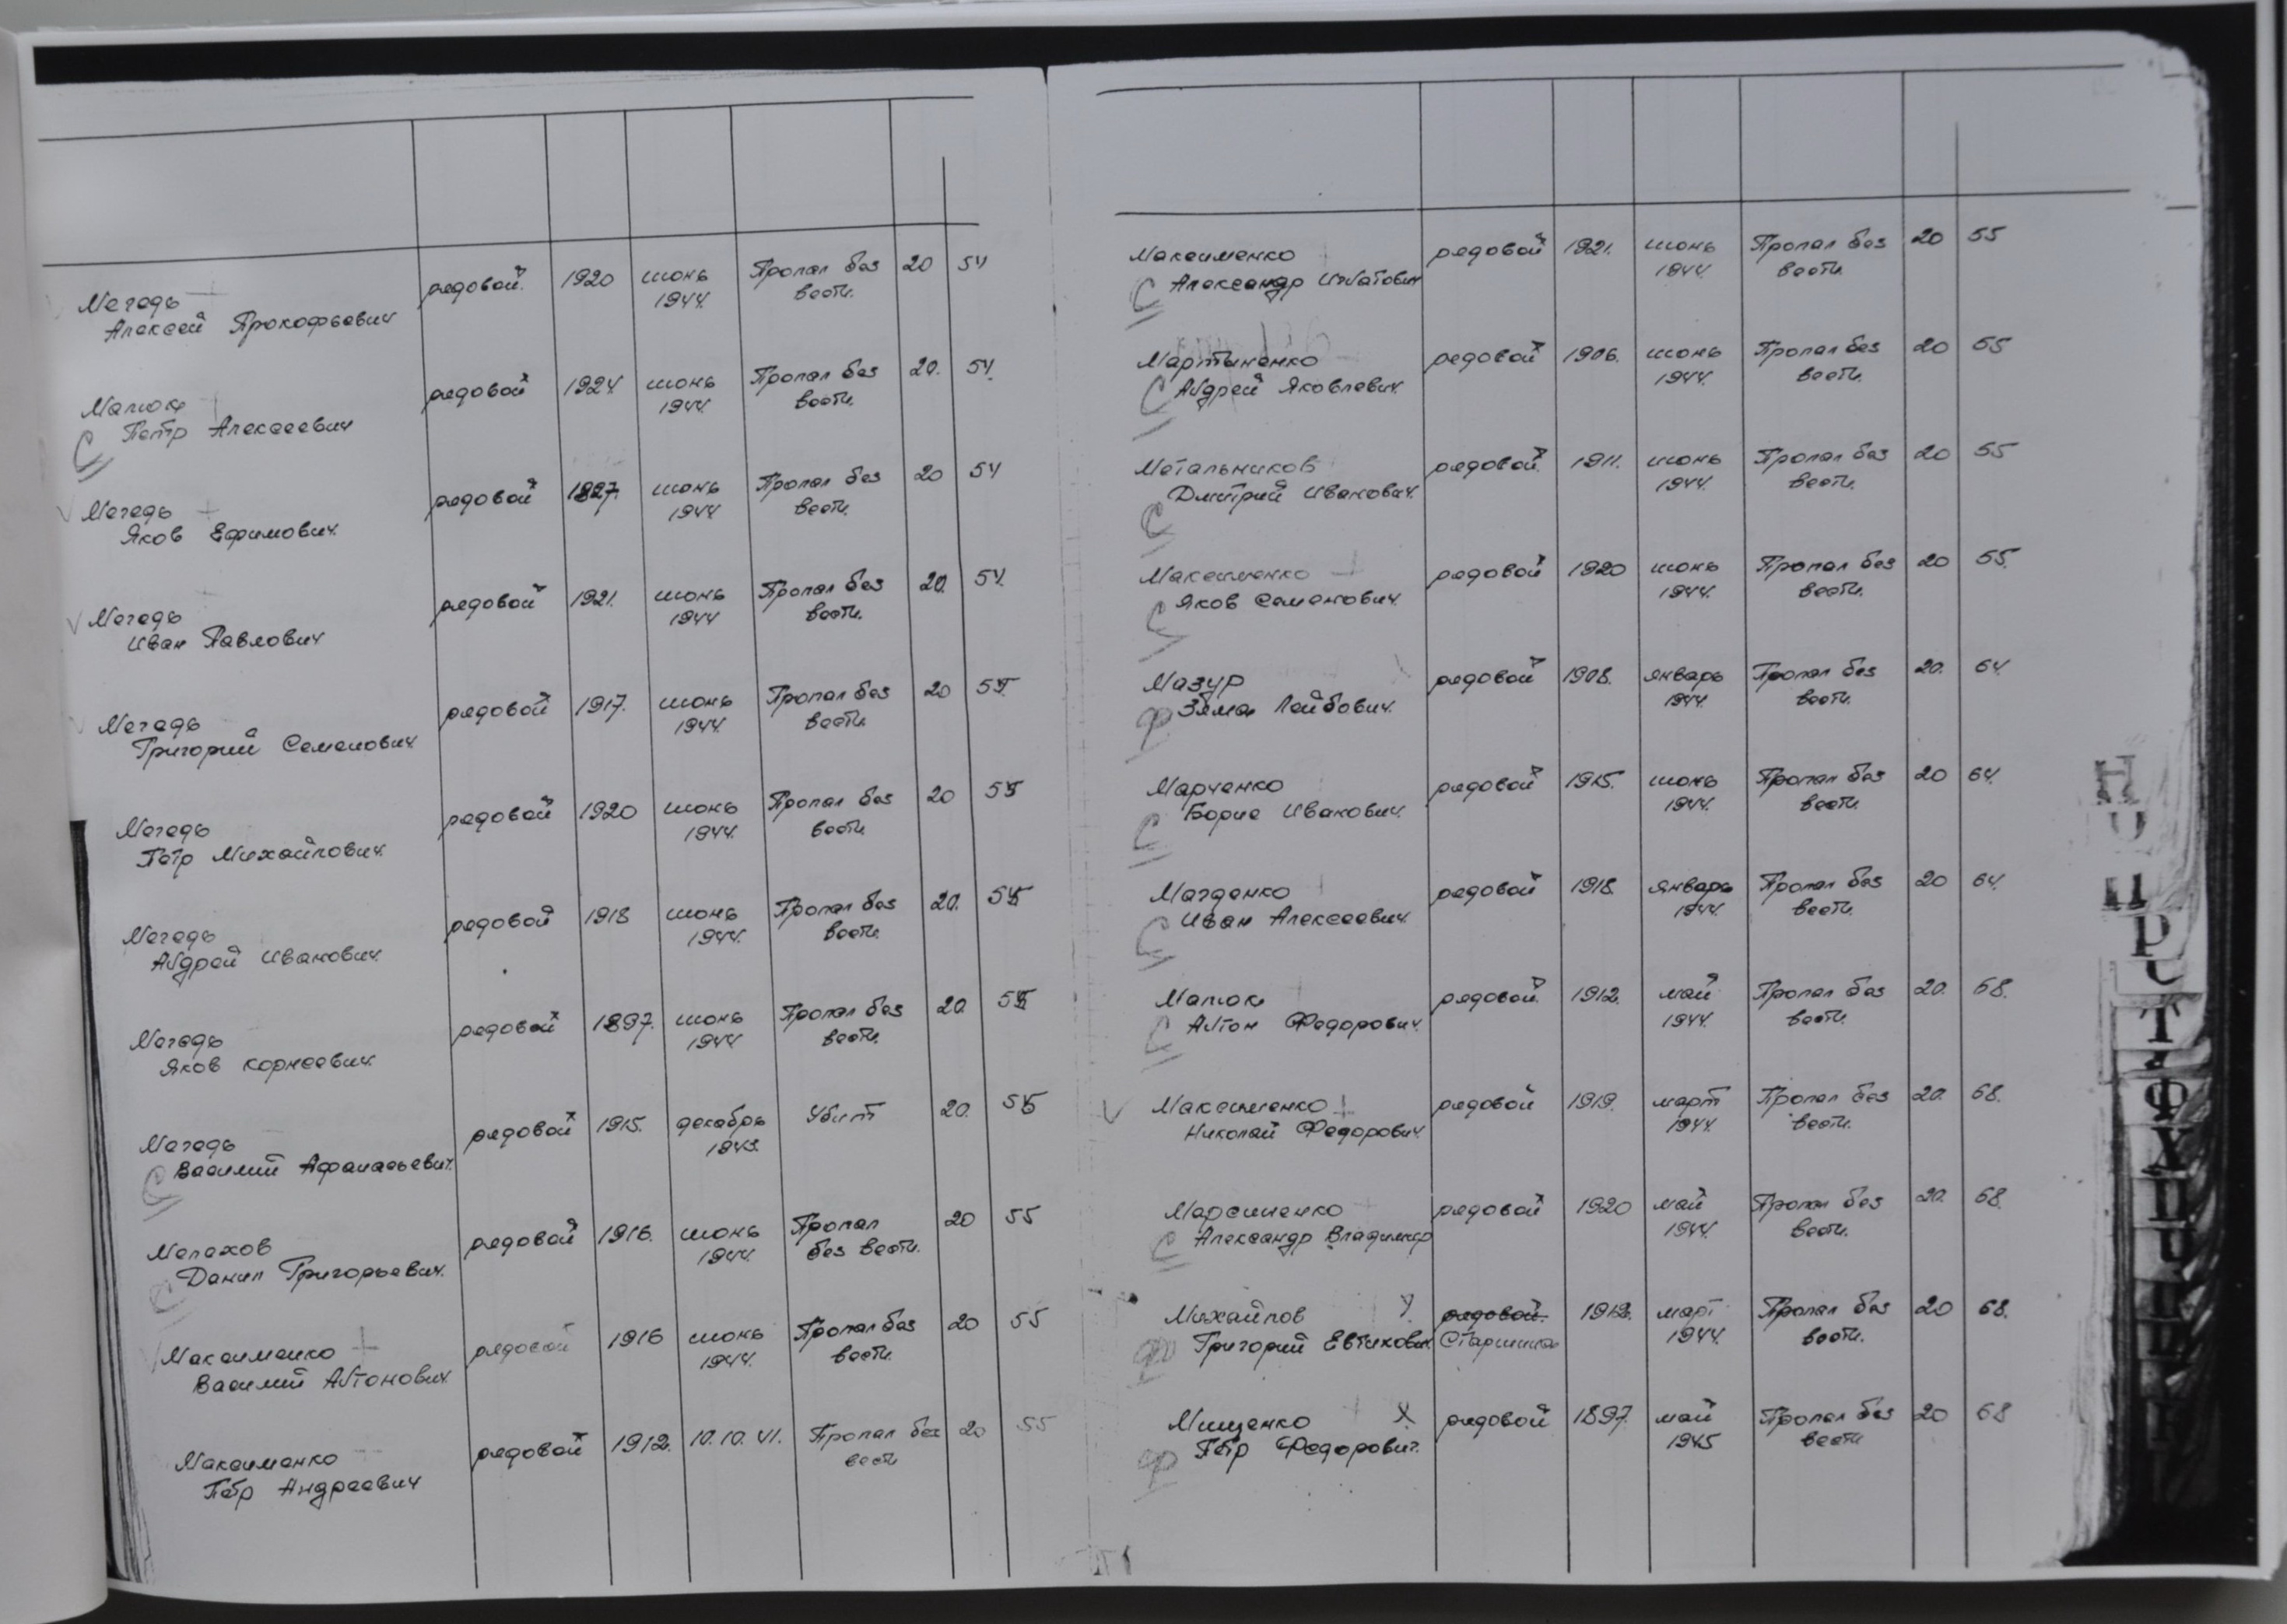 Мегедь рядовой 1920 июнь Пропал без 20 54
Алексей Прокофьевич 1944. вести.
Малюк рядовой 1924 июнь Пропал без 20. 54.
С Петр Алексеевич 1944. вести.
Мегедь рядовой 1897. июнь Пропал без 20 54
Яков Ефимович. 1944 вести.
Мегедь рядовой 1921. июнь Пропал без 20. 54.
Иван Павлович 1944 вести.
Мегедь рядовой 1917. июнь Пропал без 20 55
Григорий Семенович. 1944. вести.
Мегедь рядовой 1920 июнь Пропал без 20 55
Пётр Михайлович. 1944. вести.
Мегедь рядовой 1918 июнь Пропал без 20. 55
Андрей Иванович. 1944. вести.
Мегедь рядовой 1897. июнь Пропал без 20. 55
Яков Корнеевич. 1944. вести.
Мегедь рядовой 1915. декабрь Убит 20. 55
С Василий Афанасьевич. 1943.
Мелахов рядовой 1916. июнь Пропал 20 55
С Данил Григорьевич. 1944. без вести.
Максименко рядовой 1916 июнь Пропал без 20 55
Василий Антонович. 1944. вести.
Максименко рядовой 1912. 10.10.41. Пропал без 20 55
Пётр Андреевич вести
Максименко рядовой 1921. июнь Пропал без 20 55
С Александр Игнатович 1944. вести.
Мартыненко рядовой 1906. июнь Пропал без 20 55
С Андрей Яковлевич. 1944. вести.
Метальников рядовой 1911. июнь Пропал без 20 55
С Дмитрий Иванович. 1944. вести.
Максименко рядовой 1920 июнь Пропал без 20 55.
С Яков Семенович. 1944. вести.
Мазур рядовой 1908. январь Пропал без 20. 64.
Ф Зяма Лейбович. 1944. вести.
Марченко рядовой 1915. июнь Пропал без 20 64.
С Борис Иванович. 1944. вести.
Магденко рядовой 1918. январь Пропал без 20 64.
С Иван Алексеевич. 1944. вести.
Малюк рядовой 1912. май Пропал без 20. 68.
С Антон Федорович. 1944. вести.
Максименко рядовой 1919. март Пропал без 20. 68.
Николай Федорович. 1944. вести.
Марсименко рядовой 1920 май Пропал без 20. 68.
С Александр Владимир 1944. вести.
Михайлов рядовой. март Пропал без 20 68.
Ф Григорий Евтихович. Старшина 1944. вести.
Мищенко рядовой 1897. май Пропал без 20 68
Ф Пётр Федорович. 1945 вести
Н
П
Р
С
Т
Ф
Х